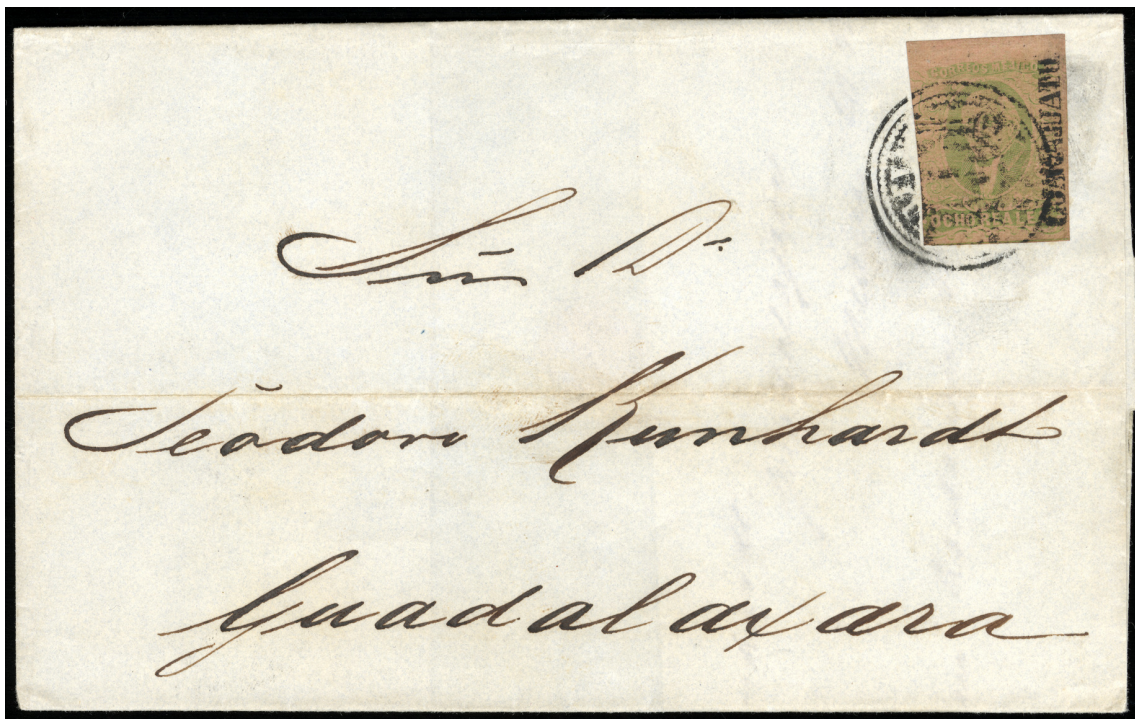 CORREOS MEXICO
GUANAJUATO
OCHO REALES
Sũr Dn
Teodoro Kunhardt
Guadalaxara